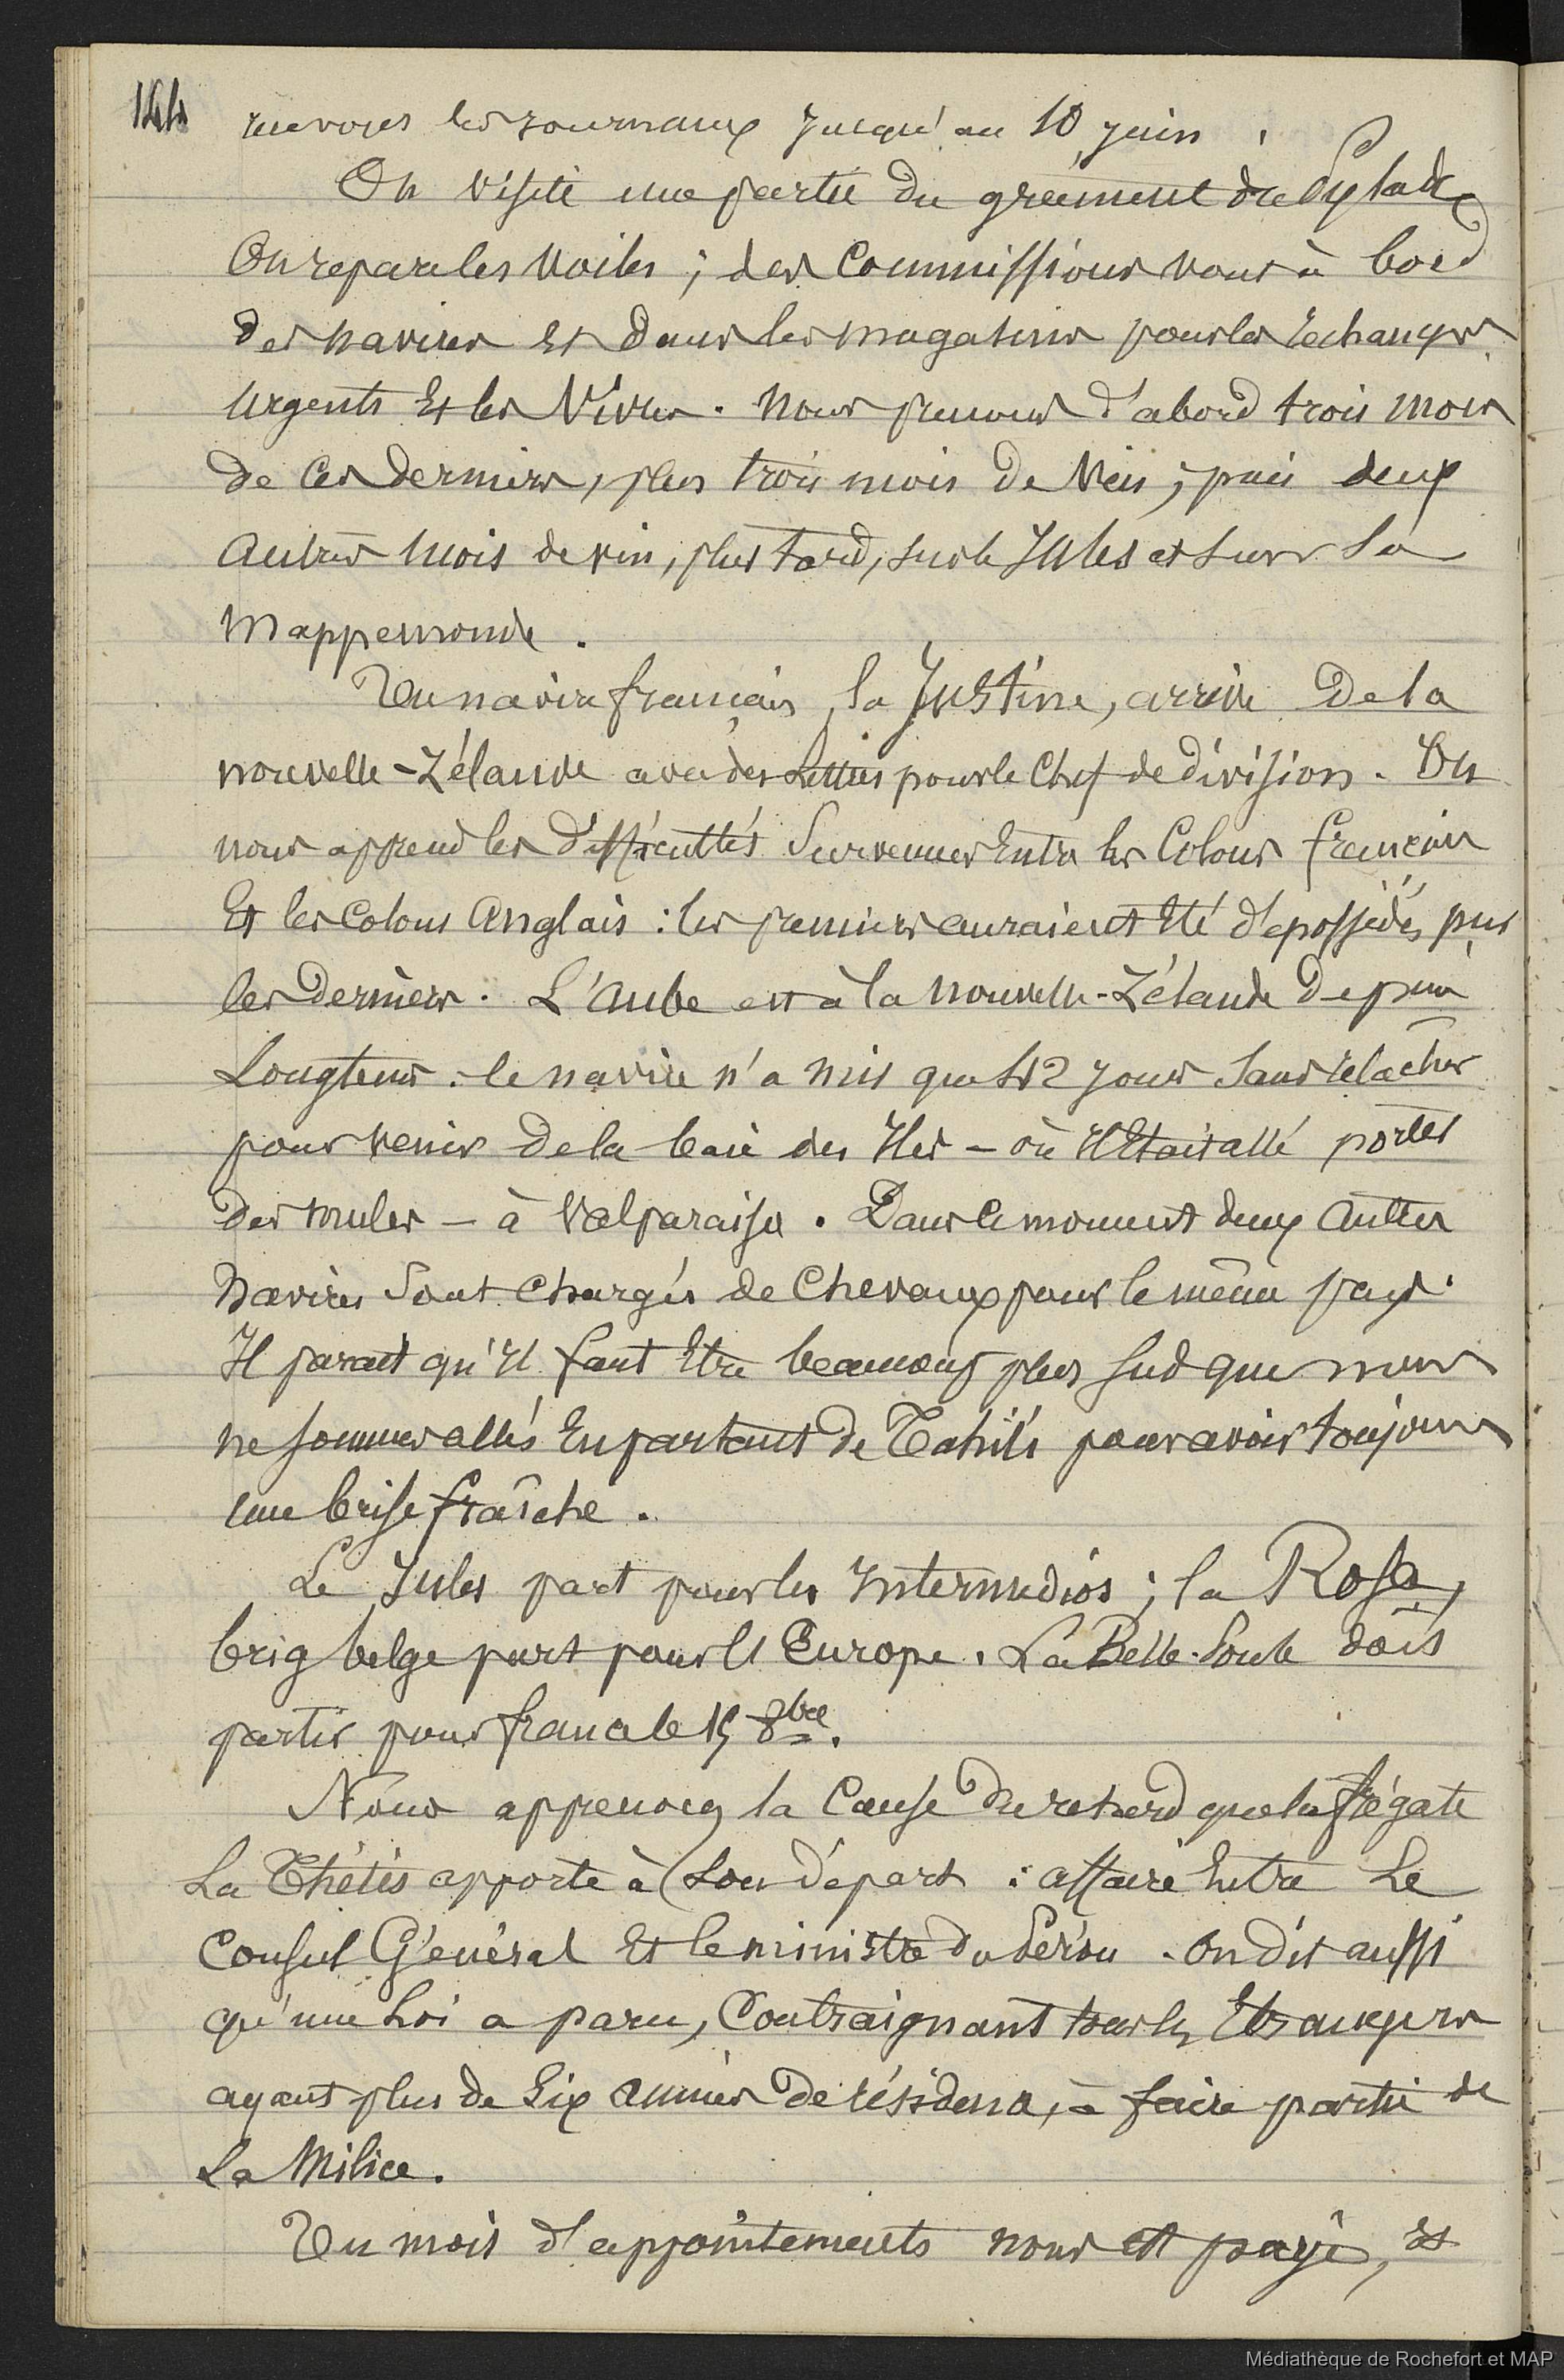 144
recevoir les journaux jusqu'au 10 juin.
On visite une partie du gréement du Pylade
On repare les voiles ; des Commissions vont à bord
des navires Et dans les magasins pour les rechanges
Urgents Et les Vivres. Nous prenons d'abord trois mois
de Ces derniers, plus trois mois de Vin ; puis deux
autres mois de vin, plus tard, sur le Jules et sur la
Mappemonde.
Un navire français, la Justine, arrive De la
nouvelle-Zélande avec des Lettres pour le Chef de division. On
nous apprend les difficultés Survenues Entre les Colons français
Et les Colons Anglais : les premiers auraient Eté dépossédés par
les derniers. L'Aube est à la nouvelle-Zélande Depuis
Longtems. le navire n'a mis que 42 jours Sans relâcher
pour venir De la baie des Iles – où Il Etait allé porter
des mules – à Valparaiso. Dans Ce moment deux Autres
Navires Sont Chargés de Chevaux pour le même pays.
Il parait qu'Il faut Etre beaucoup plus Sud que nous
ne sommes allés En partant de Tahiti pour avoir toujours
une brise fraîche.
Le Jules part pour les Intermedios ; la Rosa,
brig belge part pour l'Europe. La Belle-Poule doit
partir pour france le 15 8bre.
Nous apprenons la Cause du retard que la frégate
La Thétis apporte à Son départ : affaire Entre Le
Consul Général Et le ministre du Pérou. On dit aussi
qu'une Loi a paru, Contraignant tous les Etrangers
ayant plus de Six années De résidence, à faire partie de
La Milice.
Un mois d'appointements nous est payé, Et
Médiathèque de Rochefort et MAP